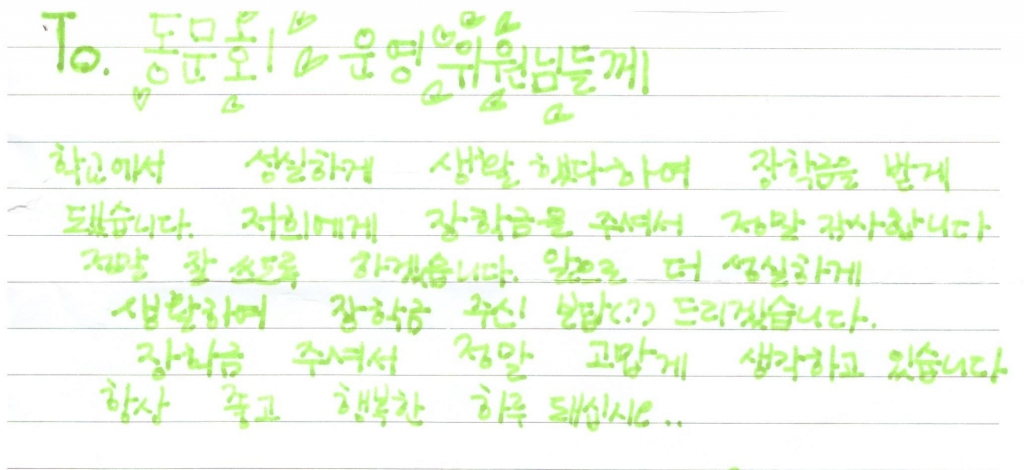 To. 동문회 운영위원님들께
학교에서 성실하게 생활 했다하여 장학금을 받게
됐습니다. 저희에게 장학금을 주셔서 정말 감사합니다
정말 잘 쓰도록 하겠습니다. 앞으로 더 성실하게
생활하여 장학금 주신 보답(?) 드리겠습니다.
장학금 주셔서 정말 고맙게 생각하고 있습니다
항상 좋고 행복한 하루 돼십시오..